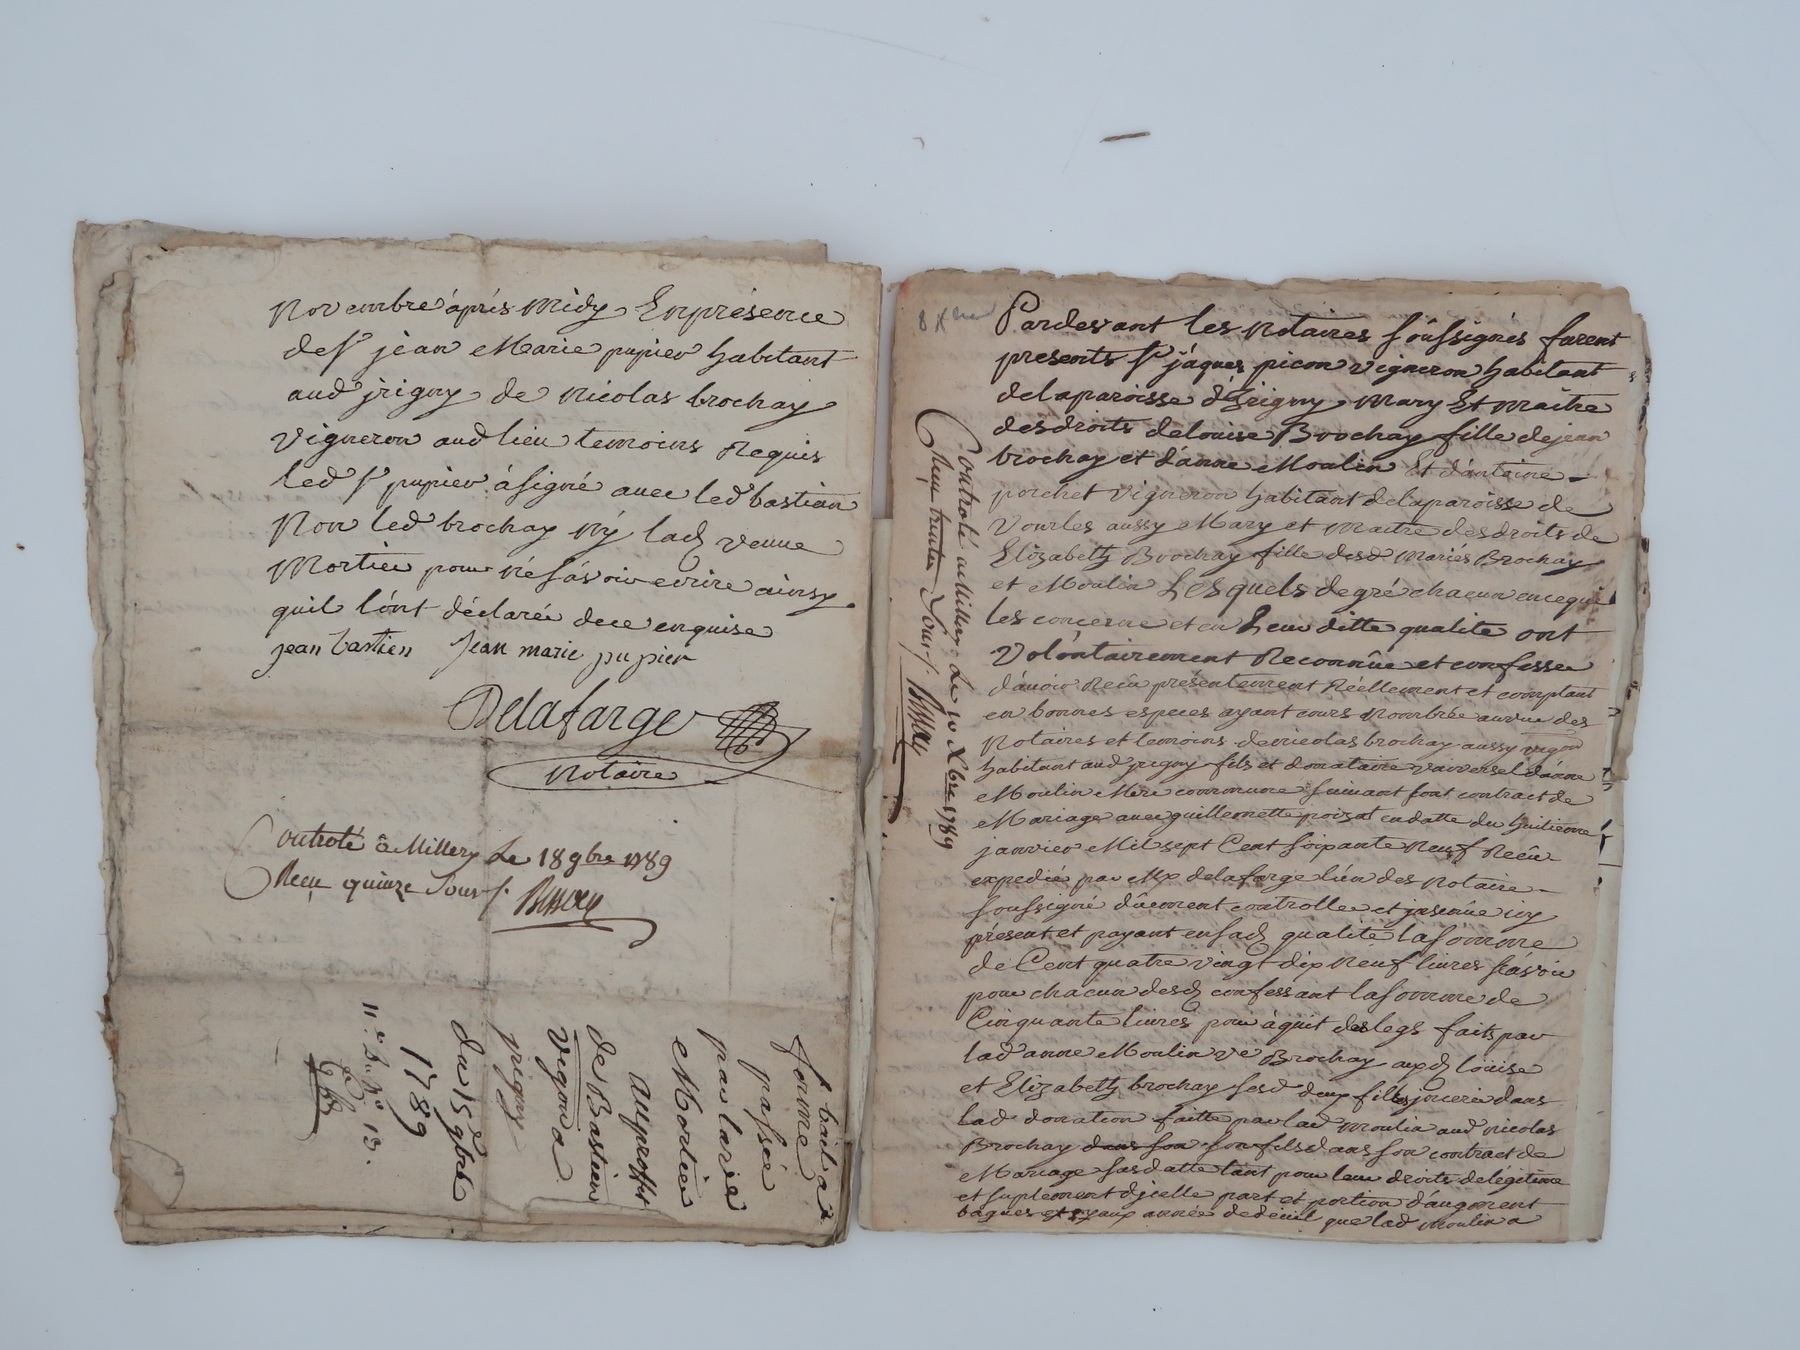 Novembre après midy Enprésence
de Sr jean Marie pupier habitant
aud jrigny de nicolas brochay
Vigneron aud lieu temoins Requis
led Sr pupier à signé avec led bastian
Non led brochay ny lad veuve
Mortier pour nésavoir ecrire ainsy
quil lont déclarée dece enquise
jean bastien jean marie pupier
Delafarge
Notaire
Controlé à Millery Le 18 9bre 1789
Reçu quinze Sous
bail a
ferme
passée
par la vve
Mortier
auproffit
de Bastien
vigon a
jrigny
du 15 9bre
1789
8 Xbre
Controlé a Millery Le 10 Xbre 1789
Reçu trente Sous
Pardevant les Notaires soussignés furent
presents Sr jaques picon vigneron habitant
delaparoisse d'Irigny Mary Et maitre
desdroits delouise Brochay fille dejean
brochay et danne Moulin Et dantoine
porchet vigneron habitant delaparoisse de
Vourles aussy Mary et maitre desdroits de
Elizabeth Brochay fille desd Mariés Brochay
et Moulin Lesquels degré chacun enceque
les concerne et en Leur ditte qualite ont
Volontairement Reconnûe et confessee
davoir Recu présentement Réellement et comptant
en bonnes especes ayant cours Nombrée auvue des
Notaires et temoins denicolas brochay aussy vigon
habitant aud jrigny fils et donataire universel danne
Moulin Mere commune suivant sont contract de
Mariage avec guillemette poizat endatte du huitieme
janvier Mil sept Cent soixante Neuf Recû
expedié par Me delafarge lun des Notaire
soussigné dûement controllee et jnsinûe icy
présent et payant ensad qualité lasomme
de Cent quatre vingt dix neuf livres scavoir
pour chacun desd confessant lasomme de
Cinquante livres pour aquit des legs faits par
lad anne Moulin ve Brochay auxd loüise
et Elizabeth brochay sesd deux filles jnceré dans
lad donation faitte par lad moulin aud nicolas
Brochay dans son son fils dans son contract de
Mariage susdatte tant pour leur droits delégitime
et suplement djcelle part et portion daugment
bagues et joyaux année dedeüil que lad Moulin a